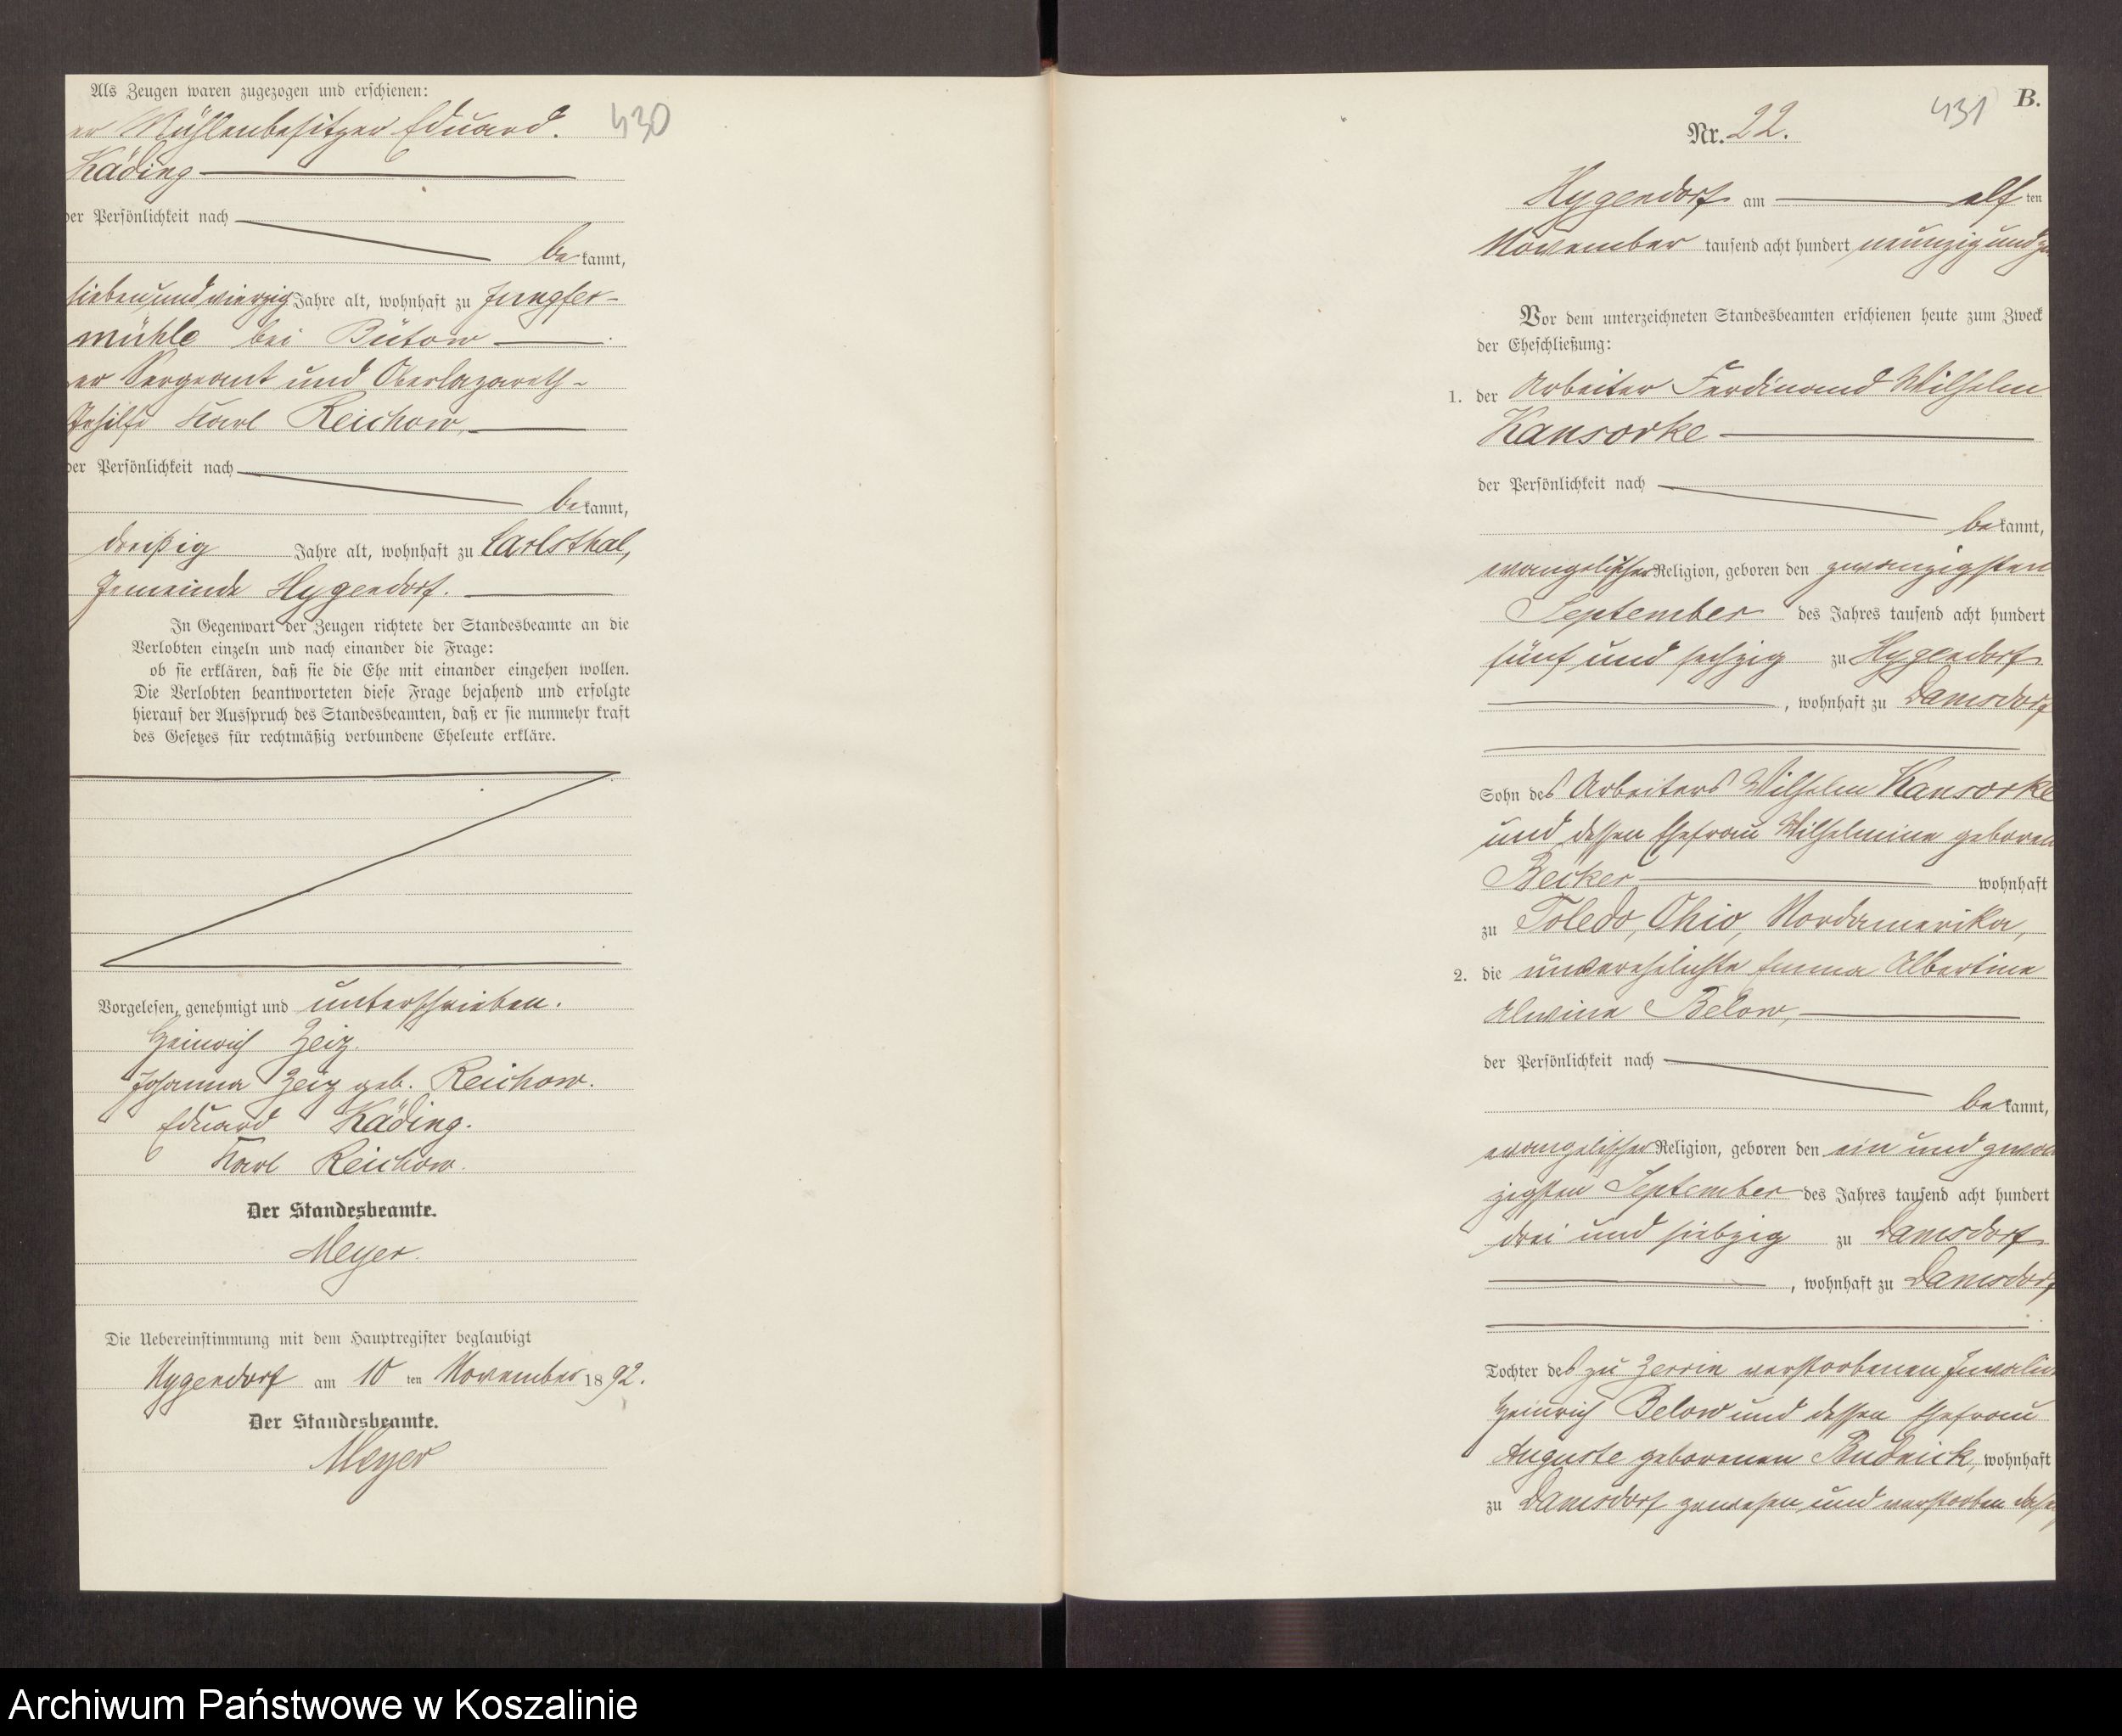 Als Zeugen waren zugezogen und erschienen:
er Mühlenbesitzer Eduard.
430
Käding
der Persönlichkeit nach
bekannt,
sieben und vierzig Jahre alt, wohnhaft zu Jungfer-
mühle bei Bütow
er Sergeant und Oberlazareth-
Gehilfe Karl Reichow,
der Persönlichkeit nach
bekannt,
dreißig Jahre alt, wohnhaft zu Carlsthal,
Gemeinde Hygendorf.
In Gegenwart der Zeugen richtete der Standesbeamte an die
Verlobten einzeln und nach einander die Frage:
ob sie erklären, daß sie die Ehe mit einander eingehen wollen.
Die Verlobten beantworteten diese Frage bejahend und erfolgte
hierauf der Ausspruch des Standesbeamten, daß er sie nunmehr kraft
des Gesetzes für rechtmäßig verbundene Eheleute erkläre.
Vorgelesen, genehmigt und unterschrieben.
Heinrich Zeiz.
Johanna Zeiz geb. Reichow.
Eduard Käding.
Karl Reichow.
Der Standesbeamte.
Meyer.
Die Uebereinstimmung mit dem Hauptregister beglaubigt
Hygendorf am 10 ten November 1892.
Der Standesbeamte.
Meyer
B.
431
Nr. 22.
Hygendorf am elf ten
November tausend acht hundert neunzig und
Vor dem unterzeichneten Standesbeamten erschienen heute zum Zweck
der Eheschließung:
1. der Arbeiter Ferdinand Wilhelm
Kansorke
der Persönlichkeit nach
bekannt,
evangelischer Religion, geboren den zwanzigsten
September des Jahres tausend acht hundert
fünf und sechzig zu Hygendorf
, wohnhaft zu Damsdorf
Sohn des Arbeiters Wilhelm Kansorke
und dessen Ehefrau Wilhelmine geboren
Becker wohnhaft
zu Toledo, Ohio, Nordamerika,
2. die unverehelichte Emma Albertine
Alwine Below,
der Persönlichkeit nach
bekannt,
evangelischer Religion, geboren den ein und zwan
zigsten September des Jahres tausend acht hundert
drei und siebzig zu Damsdorf
, wohnhaft zu Damsdorf
Tochter des zu Zerrin verstorbenen Invalid
Heinrich Below und dessen Ehefrau
Auguste geborenen Budnick, wohnhaft
zu Damsdorf gewesen und verstorben
Archiwum Państwowe w Koszalinie